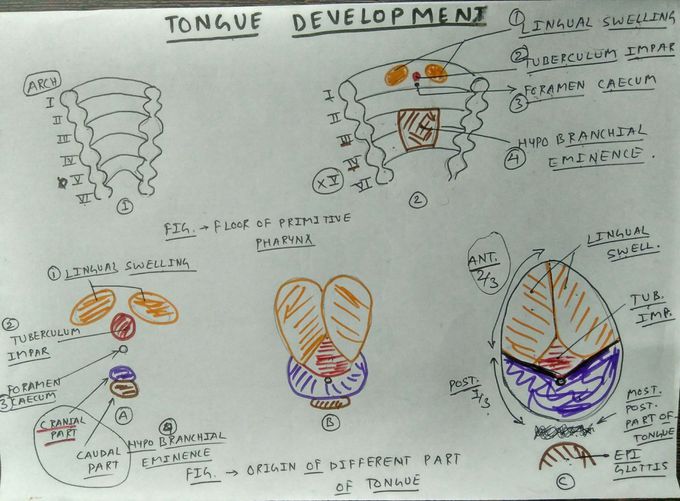 TONGUE DEVELOPMENT
① LINGUAL SWELLING
② TUBERCULUM IMPAR
FORAMEN CAECUM
③
HYPO BRANCHIAL
④ EMINENCE.
ARCH
I
II
III
IV
V
VI
①
I
II
III
IV
X V
VI
②
FIG. → FLOOR OF PRIMITIVE
PHARYNX
① LINGUAL SWELLING
② TUBERCULUM
IMPAR
FORAMEN
③ CAECUM
CRANIAL
PART
CAUDAL
PART
④ HYPO BRANCHIAL
EMINENCE
A
B
ANT.
2/3
POST.
1/3
LINGUAL
SWELL.
TUB.
IMP.
MOST.
POST.
PART OF
TONGUE
EPI
GLOTTIS
C
FIG. → ORIGIN OF DIFFERENT PART
OF TONGUE